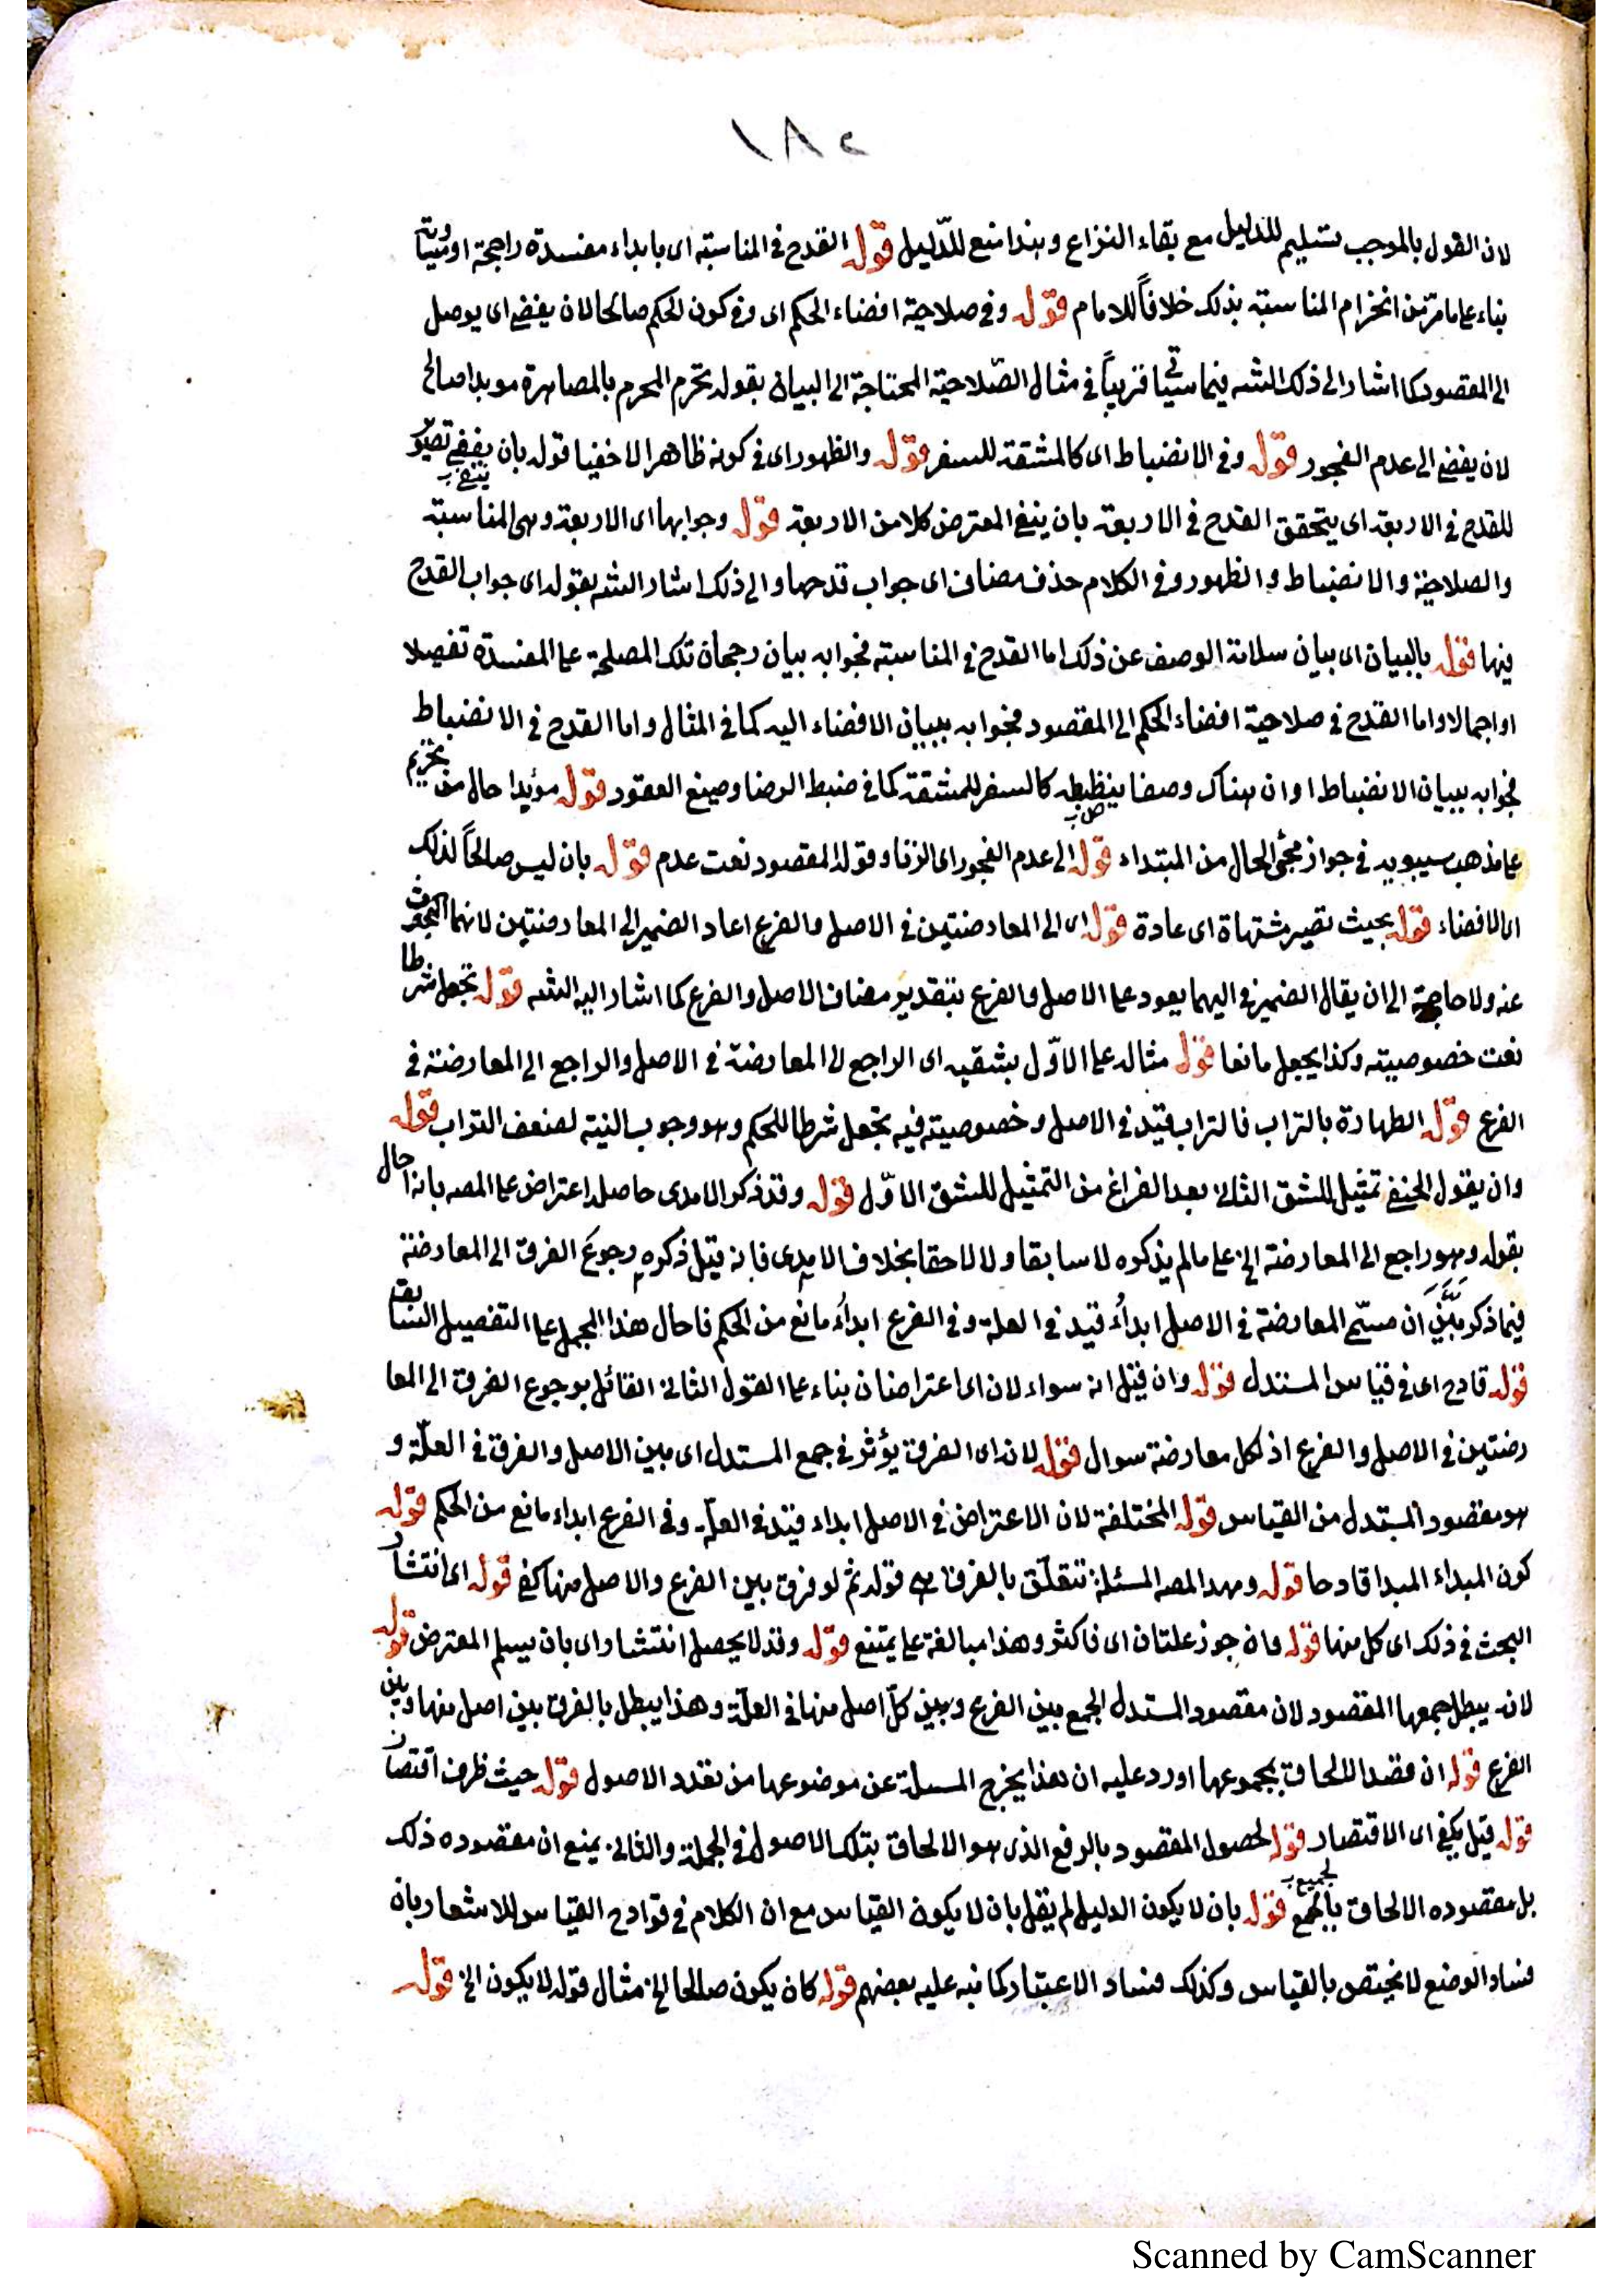 ١٨٥
لان القول بالموجب تسليم للدليل مع بقاء النزاع وهذا منع للدّليل قوله القدح في المناسبة اى بابداء مفسدة راجحة او مساوية
بناء على ما مرّ من انخرام المناسبة بذلك خلافاً للامام قوله وفي صلاحية افضاء الحكم اى وفى كون الحكم صالحا لان يفضى اى يوصل
الى المقصود كما اشار الى ذلك الشه فيما سيأتى قريباً في مثال الصّلاحية المحتاجة الى البيان بقوله تحرم المحرم بالمصاهرة موبدا صالح
لان يفضى الى عدم الفجور قوله وفي الانضباط اى كالمشقة للسفر قوله والظهور اى فى كونه ظاهرا لا خفيا قوله بان ينفى تصوير
للقدح في الاربعة اى يتحقق القدح في الاربعة بان ينفى المعترض كلا من الاربعة قوله وجوابها اى الاربعة وهى المناسبة
والصلاحية والانضباط والظهور وفي الكلام حذف مضاف اى جواب قدحها والى ذلك اشار الشه بقوله اى جواب القدح
فيها قوله بالبيان اى بيان سلامة الوصف عن ذلك اما القدح في المناسبة فجوابه ببيان رجحان تلك المصلحة على المفسدة تفصيلا
او اجمالا واما القدح في صلاحية افضاء الحكم الى المقصود فجوابه ببيان الافضاء اليه كما في المثال واما القدح في الانضباط
فجوابه ببيان الانضباط او ان هناك وصفا ينضبط كالسفر للمشقة كما في ضبط الرضا وصيغ العقود قوله مؤبدا حال من تحريم
على مذهب سيبويه في جواز مجئ الحال من المبتداء قوله الى عدم الفجور اى الزنا وقوله المقصود نعت عدم قوله بان ليس صالحاً لذلك
اى الافضاء قوله بحيث تصير مشتهاة اى عادة قوله اى الى المعارضتين في الاصل والفرع اعاد الضمير الى المعارضتين لانهما المبحوث
عنه ولا حاجة الى ان يقال الضمير في اليهما يعود على الاصل والفرع بتقدير مضاف الاصل والفرع كما اشار اليه الشه قوله تجعل شرطا
نعت خصوصيته وكذا يجعل مانعا قوله مثاله على الاوّل بشقيه اى الراجع الى المعارضة في الاصل والراجع الى المعارضة في
الفرع قوله الطهارة بالتراب فالتراب قيد في الاصل وخصوصيته فيه تجعل شرطا للحكم وهو وجوب النية لضعف التراب قوله
وان يقول الحنفى تمثيل للشق الثانى بعد الفراغ من التمثيل للشق الاوّل قوله وقد ذكر الامدى حاصله اعتراض على المصه بانه احال
بقوله وهو راجع الى المعارضة الخ على ما لم يذكره لا سابقا ولا لاحقا بخلاف الامدى فانه قبل ذكره رجوعَ الفرق الى المعارضة
فيما ذكر بَيَّنَ ان مسمّى المعارضة في الاصل ابداء قيد في العلة وفي الفرع ابداء مانع من الحكم فاحال هذا المجمل على التفصيل السابق
قوله قادح اى في قياس المستدل قوله وان قيل انه سواء لان اى اعتراضان بناء على القول الثانى القائل برجوع الفرق الى المعا
رضتين في الاصل والفرع اذ لكل معارضة سوال قوله لانه اى الفرق يؤثر في جمع المستدل اى بين الاصل والفرق في العلّة و
هو مقصود المستدل من القياس قوله المختلفة لان الاعتراض في الاصل ابداء قيد في العلّة وفي الفرع ابداء مانع من الحكم قوله
كون المبداء المبدا قادحا قوله ومهد المصه المسئلة تتعلّق بالفرق هى قوله ثم لو فرق بين الفرع والاصل منها كفى قوله اى انتشار
البحث في ذلك اى كل منها قوله وان جوز علتان اى فاكثر وهذا مبالغة على يمتنع قوله وقد لا يحصل انتشار اى بان يسلم المعترض قوله
لانه يبطل جمعها المقصود لان مقصود المستدل الجمع بين الفرع وبين كلّ اصل منها في العلّة وهذا يبطل بالفرق بين اصل منها وبين
الفرع قوله ان قصد الالحاق بمجموعها اورد عليه ان هذا يخرج المسىلة عن موضوعها من تعدد الاصول قوله حيث ظرف اقتصار
قوله قيل يكفى اى الاقتصار قوله لحصول المقصود بالرفع الذى هو الالحاق بتلك الاصول في الجملة والثانى يمنع ان مقصوده ذلك
بل مقصوده الالحاق بالجميع قوله بان لا يكون الدليل لم يقل بان لا يكون القياس مع ان الكلام في قوادح القياس للاشعار بان
فساد الوضع لا يختص بالقياس وكذلك فساد الاعتبار كما نبه عليه بعضهم قوله كان يكون صالحا الخ مثال قوله لا يكون الخ قوله
Scanned by CamScanner